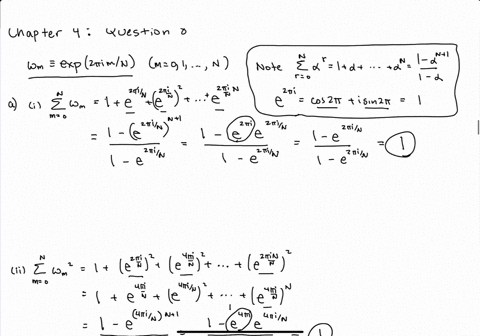 Chapter 4: Question 0
ωm ≡ exp(2πim/N) (m=0,1,..., N)
Note ∑_{r=0}^{N} α^r = 1+α+ ··· +α^N = (1-α^{N+1})/(1-α)
e^{2πi} = cos2π + isin2π = 1
a) (i) ∑_{m=0}^{N} ωm = 1 + e^{2πi/N} + (e^{2πi/N})^2 + ... + e^{2πi/N N}
= (1-(e^{2πi/N})^{N+1})/(1-e^{2πi/N}) = (1-e^{2πi} e^{2πi/N})/(1-e^{2πi/N}) = (1-e^{2πi/N})/(1-e^{2πi/N}) = 1
(ii) ∑_{m=0}^{N} ωm^2 = 1 + (e^{2πi/N})^2 + (e^{4πi/N})^2 + ··· + (e^{2πiN/N})^2
= 1 + e^{4πi/N} + (e^{4πi/N})^2 + ··· + (e^{4πi/N})^N
= 1-e^{(4πi/N)N+1} = 1-e^{4πi} e^{4πi/N}